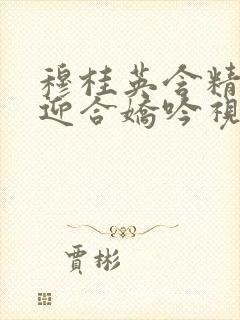 穆桂英含精
迎合嬌吟視
賈彬